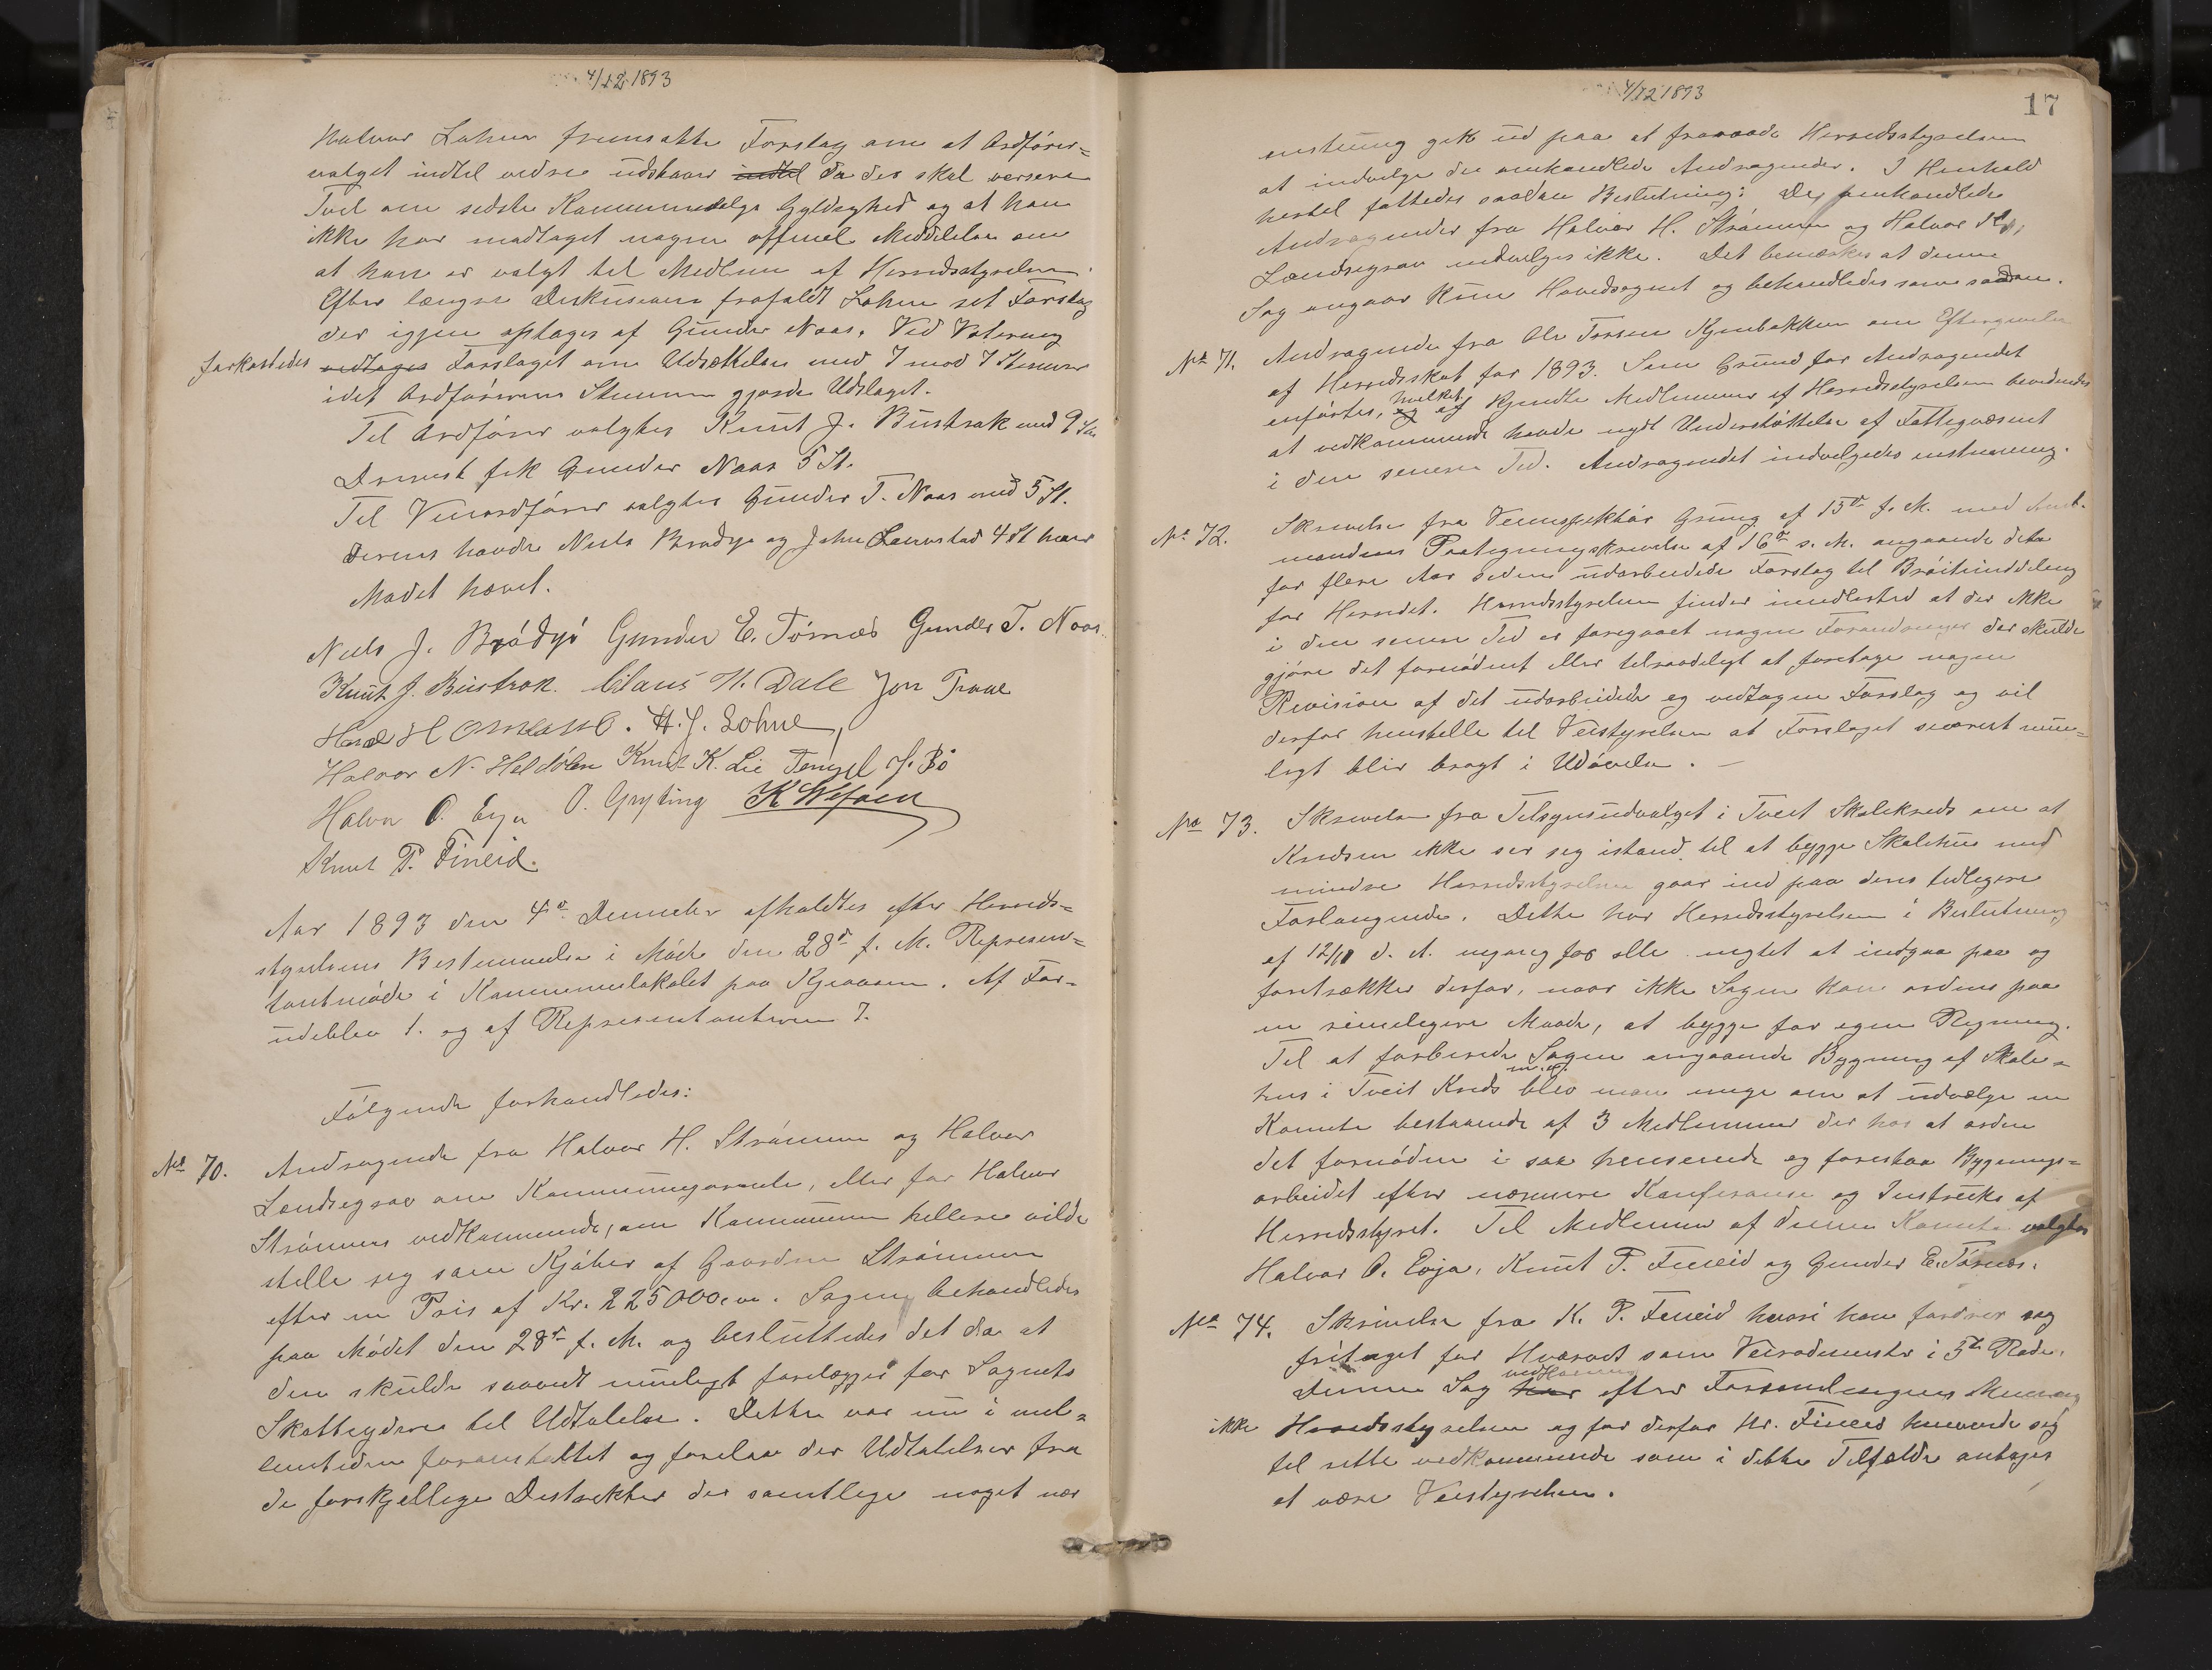 4/12 1893
Halvor Lohne fremsatte Forslag om at Ordförer=
valget indtil videre udstaar indtil da der skal versere
Tvil om sidste Kommunevalgs Gyldighed og at han
ikke har modtaget nogen officiel Meddelelse om
at han er valgt til Medlem af Herredsstyrelsen.
Efter længere Diskusion frafaldt Lohne sit Forslag
der igjen optages af Gunder Naas. Ved Votering
forkastedes vedtages Forslaget om Udsættelse med 7 mod 7 Stemmer
idet Ordförerens Stemme gjorde Udslaget.
Til Ordförer valgtes Knut J. Bustrak med 9 St.
Dernest fik Gunder Naas 5 St.
Til Viceordförer valgtes Gunder T. Naas med 5 St.
Dernest havde Niels Brödsjö og John Lannstad 4 St hver
Mödet hævet.
Niels J. Brödsjö Gunder E. Törnæs Gunder T. Naas
Knut J. Bustrak. Claus H. Dale Jon Traae
H. J. Lohne,
Halvor N. Heldölen Knut K. Lie Tengel J. Bö
Halvor O. Evja O. Gryting
Knut P. Fineid.
Aar 1893 den 4de December afholdtes efter Herreds=
styrelsens Bestemmelse i Möde den 28de f. M. Represen=
tantmöde i Kommunelokalet paa Kjeaasen. Af For-
udeblev 1. og af Representanterne 7.
Fölgende forhandledes:
No 70. Andragende fra Halvor H. Strömmen og Halvor
Landsegrav om Kommunegarante, eller for Halvor
Strömmens vedkommende, om Kommunen hellere vilde
stille sig som Kjöber af Gaarden Strömmen
efter en Pris af Kr. 225000,00. Sagen behandledes
paa Mödet den 28de f. M. og besluttedes det da at
den skulde saavidt muligt forelægges for Sognets
Skatteydere til Udtalelse. Dette var nu i mel=
lemtiden foranstaltet og forelaa der Udtalelser fra
de forskjellige Distrikter der samtlige noget nær
4/12 1893
17
enstemmig gik ud paa at fraraade Herredsstyrelsen
at indvilge de omhandlede Andragender. I Henhold
hertil fattedes saadan Beslutning: De omhandlede
Andragender fra Halvor H. Strömmen og Halvor
Landsegrav indvilges ikke. Det bemærkes at denne
Sag angaar kun Hovedsognet og behandledes som saadan.
No 71. Andragende fra Ole Torsen Kjenbakken om Eftergivelse
af Herredsskat for 1893. Som Grund for Andragendet
hvilket
anförtes, og af kjendte Medlemmer af Herredsstyrelsen bevidnedes
at vedkommende havde nydt Understöttelse af Fattigvæsenet
i den senere Tid. Andragendet indvilgedes enstemmig.
No 72. Skrivelse fra Veiinspektör Grung af 15de f. M. med Amt-
mandens Paategningsskrivelse af 16de s. M. angaaende dette
for flere Aar siden udarbeidede Forslag til Bröiteinddeling
for Herredet. Herredsstyrelsen finder imidlertid at der ikke
i den senere Tid er foregaaet nogen Forandringer der skulde
gjöre det fornödent eller tilraadeligt at foretage nogen
Revision af det udarbeidede og vedtagne Forslag og vil
derfor henstille til Veistyrelsen at Forslaget snarest mu=
ligt blir bragt i Udövelse. —
No 73. Skrivelse fra Tilsynsudvalget i Tveit Skolekreds om at
Kredsen ikke ser sig istand til at bygge Skolehus med
mindre Herredsstyrelsen gaar ind paa dens tidligere
Forlangende. Dette har Herredsstyrelsen i Beslutning
af 12/10 d. A. engang for alle negtet at indgaa paa og
foretrækker derfor, naar ikke Sagen kan ordnes paa
en rimeligere Maade, at bygge for egen Regning.
Til at forberede Sagen angaaende Bygning af Skole=
hus i Tveit Kreds blev man enige om at udvælge en
Komite bestaaende af 3 Medlemmer der har at ordne
det fornödne i saa henseende og forestaa Bygnings=
arbeidet efter nærmere Konferanse og Instruks af
Herredsstyret. Til Medlemmer af denne Komite valgtes
Halvor O. Evja, Knut P. Fineid og Gunder E. Törnæs.
No 74. Skrivelse fra K. P. Fineid hvori han fordrer sig
fritaget for Hvervet som Veirodemester i 5te Rode.
vedkommer
Denne Sag har efter Forsamlingens Mening
ikke Herredsstyrelsen og faar derfor Hr. Fineid henvende sig
til rette vedkommende som i dette Tilfælde antages
at være Veistyrelsen.